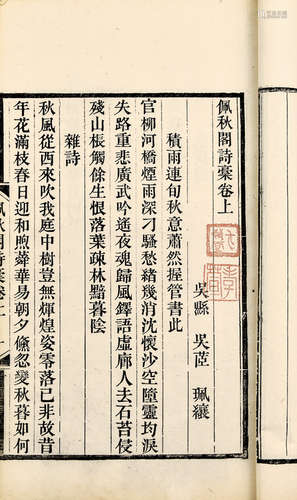 佩秋閣詩稾卷上
吳縣 吳茝 珮纕
積雨連旬秋意蕭然握管書此
官柳河橋煙雨深刁騷愁緒幾消沈懷沙空墮靈均淚
失路重悲廣武吟遙夜魂歸風鐸語虛廊人去石苔侵
殘山棖觸餘生恨落葉疎林黯暮陰
雜詩
秋風從西來吹我庭中樹豈無煇煌姿零落已非故昔
年花滿枝春日迎和煦蕣華易朝夕儵忽變秋暮如何